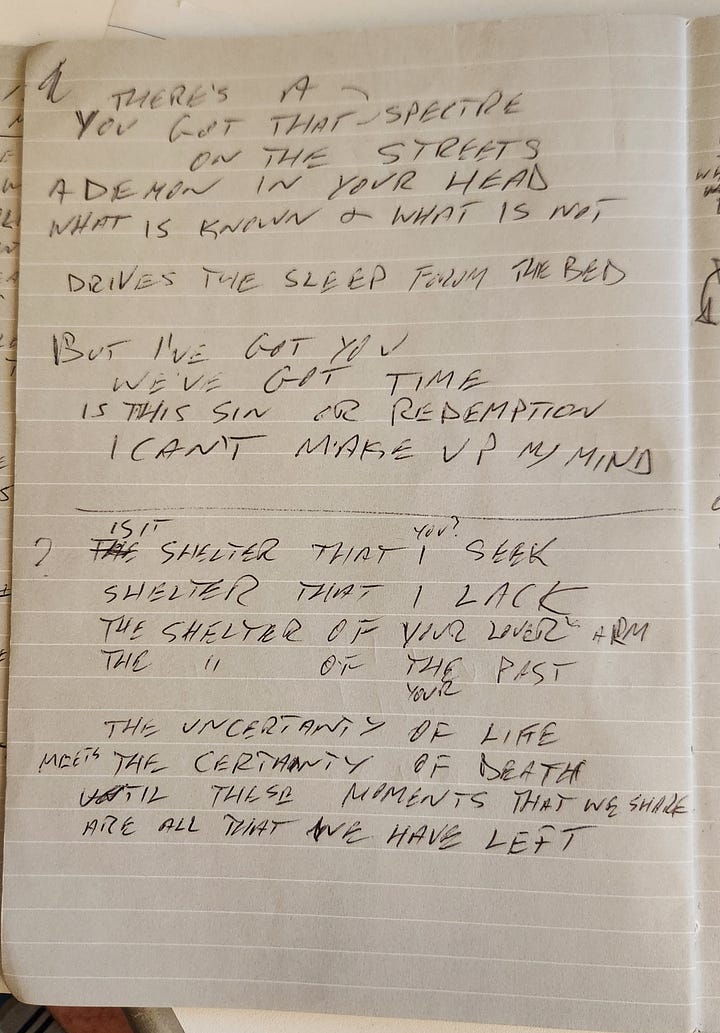 THERE'S A
YOU GOT THAT SPECTRE
ON THE STREETS
A DEMON IN YOUR HEAD
WHAT IS KNOWN & WHAT IS NOT
DRIVES THE SLEEP FROM THE BED
BUT I'VE GOT YOU
WE'VE GOT TIME
IS THIS SIN OR REDEMPTION
I CAN'T MAKE UP MY MIND
IS IT YOU?
? THE SHELTER THAT I SEEK
SHELTER THAT I LACK
THE SHELTER OF YOUR LOVER'S ARM
THE " OF THE PAST
YOUR
THE UNCERTANTY OF LIFE
MEETS THE CERTANTY OF DEATH
UNTIL THESE MOMENTS THAT WE SHARE
ARE ALL THAT WE HAVE LEFT